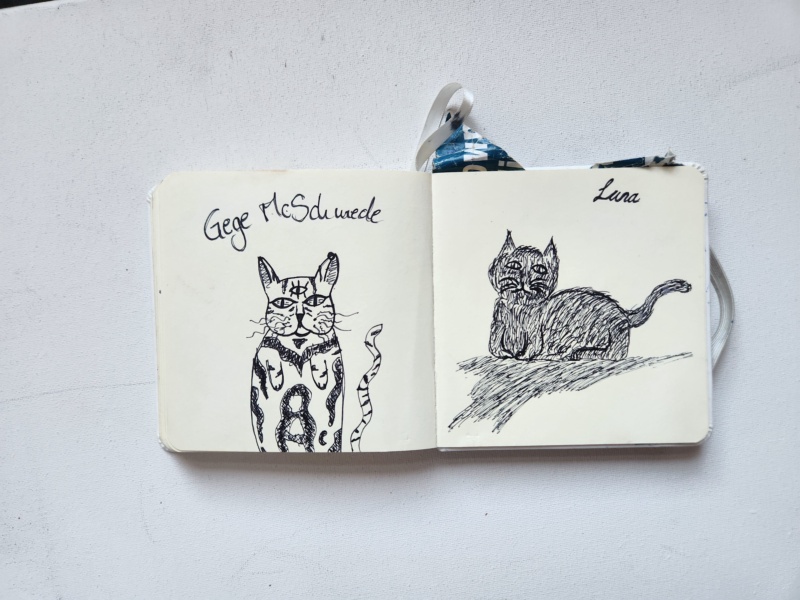 Gege McSchwede
Luna